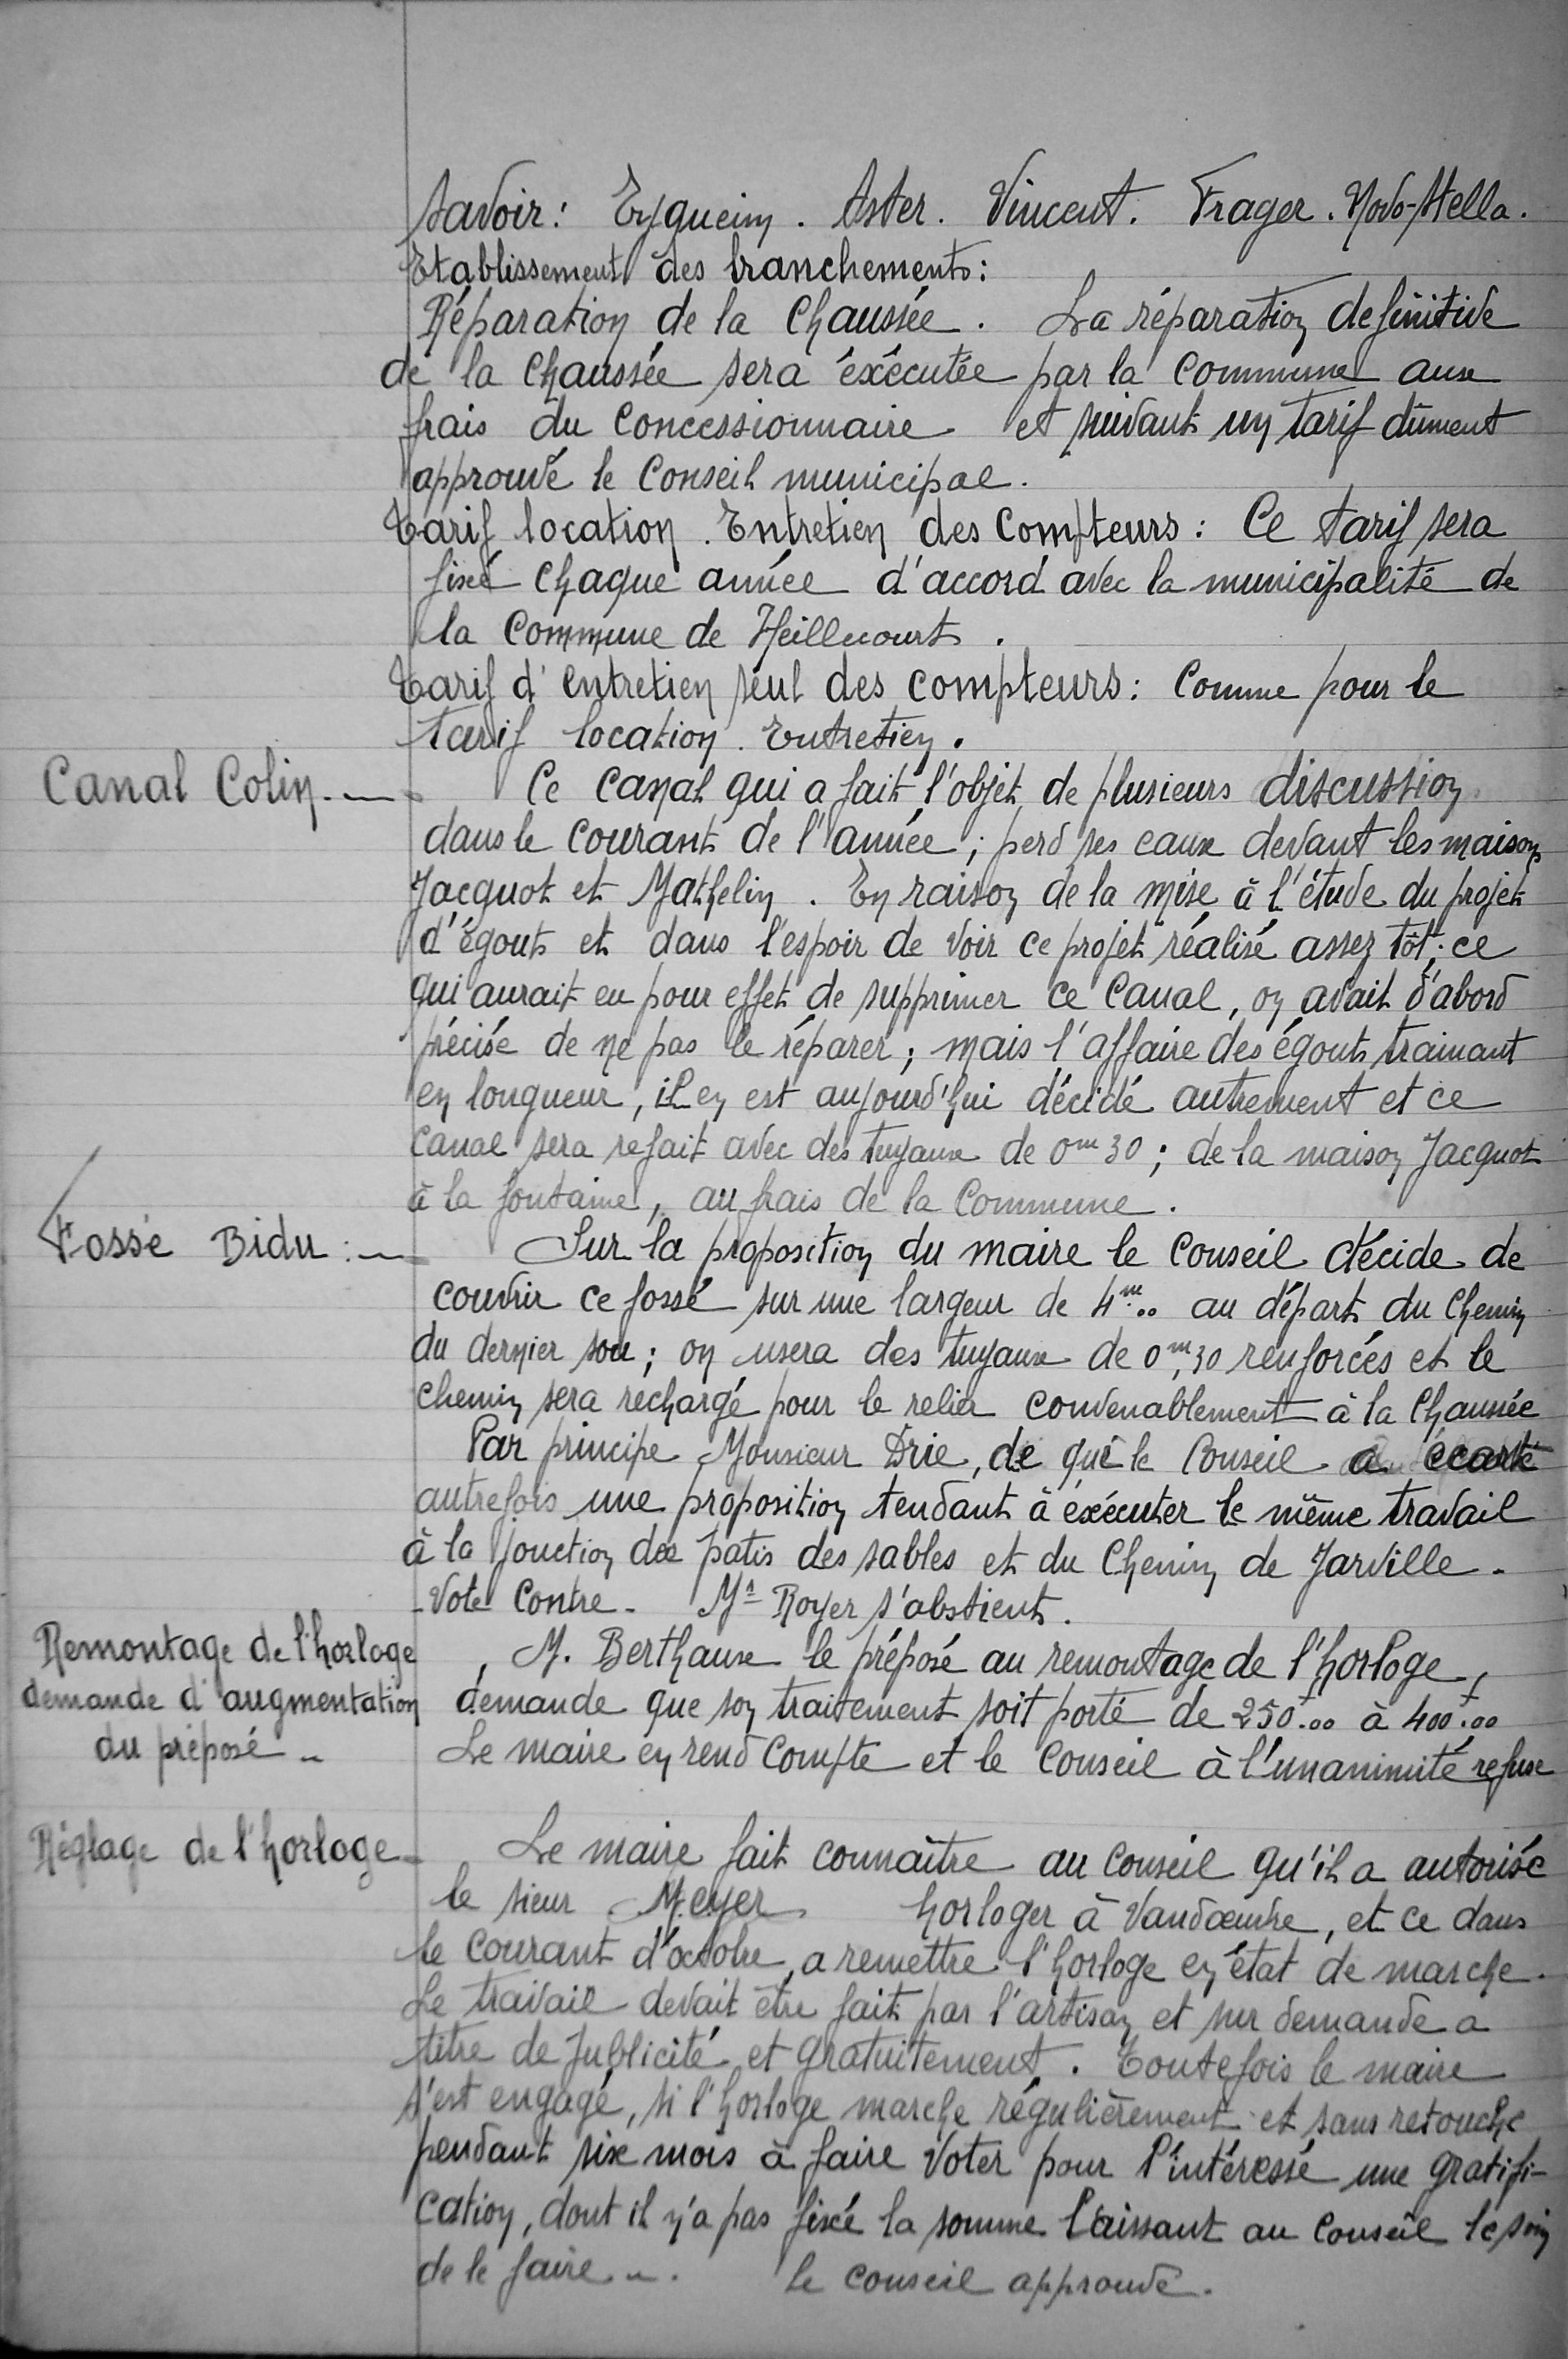 savoir: Eyqueim. Aster. Vincent. Frager. Novo-Stella.
Etablissement des branchements:
Réparation de la Chaussée. La réparation definitive
de la Chaussée sera éxécutée par la Commune aux
frais du Concessionnaire et suivant un tarif dûment
approuvé le Conseil municipal.
Tarif location. Entretien des Compteurs: Ce tarif sera
fixé chaque année d'accord avec la municipalité de
la Commune de Heillecourt.
Tarif d'entretien seul des compteurs: Comme pour le
tarif location. Entretien.
Canal Colin. —
Ce Canal qui a fait l'objet de plusieurs discussion
dans le courant de l'année; perd ses eaux devant les maisons
Jacquot et Mathelin. En raison de la mise à l'étude du projet
d'égouts et dans l'espoir de voir ce projet réalisé assez tôt; ce
qui aurait eu pour effet de supprimer ce Canal, on avait d'abord
précisé de ne pas le réparer; mais l'affaire des égouts trainant
en longueur, il en est aujourd'hui décidé autrement et ce
canal sera refait avec des tuyaux de 0m30; de la maison Jacquot
à la fontaine, au frais de la Commune.
Fossé Bidu: —
Sur la proposition du maire le Conseil décide de
couvrir ce fossé sur une largeur de 4m.00 au départ du Chemin
du dernier sou; on usera des tuyaux de 0m,30 renforcés et le
chemin sera rechargé pour le relier convenablement à la Chaussée
Par principe Monsieur Drie, de que le Conseil a écarté
autrefois une proposition tendant à éxécuter le même travail
à la jonction des patis des sables et du Chemin de Jarville.
-Vote Contre- Mr Royer s'abstient.
Remontage de l'horloge
demande d'augmentation
du préposé -
M. Berthaux le préposé au remontage de l'horloge,
demande que son traitement soit porté de 250f.00 à 400f.00
Le maire en rend compte et le Conseil à l'unanimité refuse
Réglage de l'horloge -
Le maire fait connaître au Conseil qu'il a autorisé
le sieur Meyer horloger à Vandœuvre, et ce dans
le courant d'octobre, a remettre l'horloge en état de marche.
Le travail devait être fait par l'artisan et sur demande a
titre de publicité et gratuitement. Toutefois le maire
s'est engagé, si l'horloge marche régulièrement et sans retouche
pendant six mois à faire voter pour l'intéressé une gratifi-
cation, dont il n'a pas fixé la somme laissant au Conseil le soin
de le faire -. le conseil approuve.